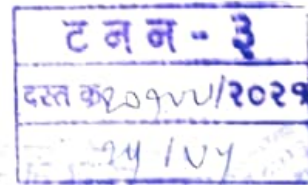 ट न न - ३
दस्त क्र२०१५५/२०२१
२५ / ७५